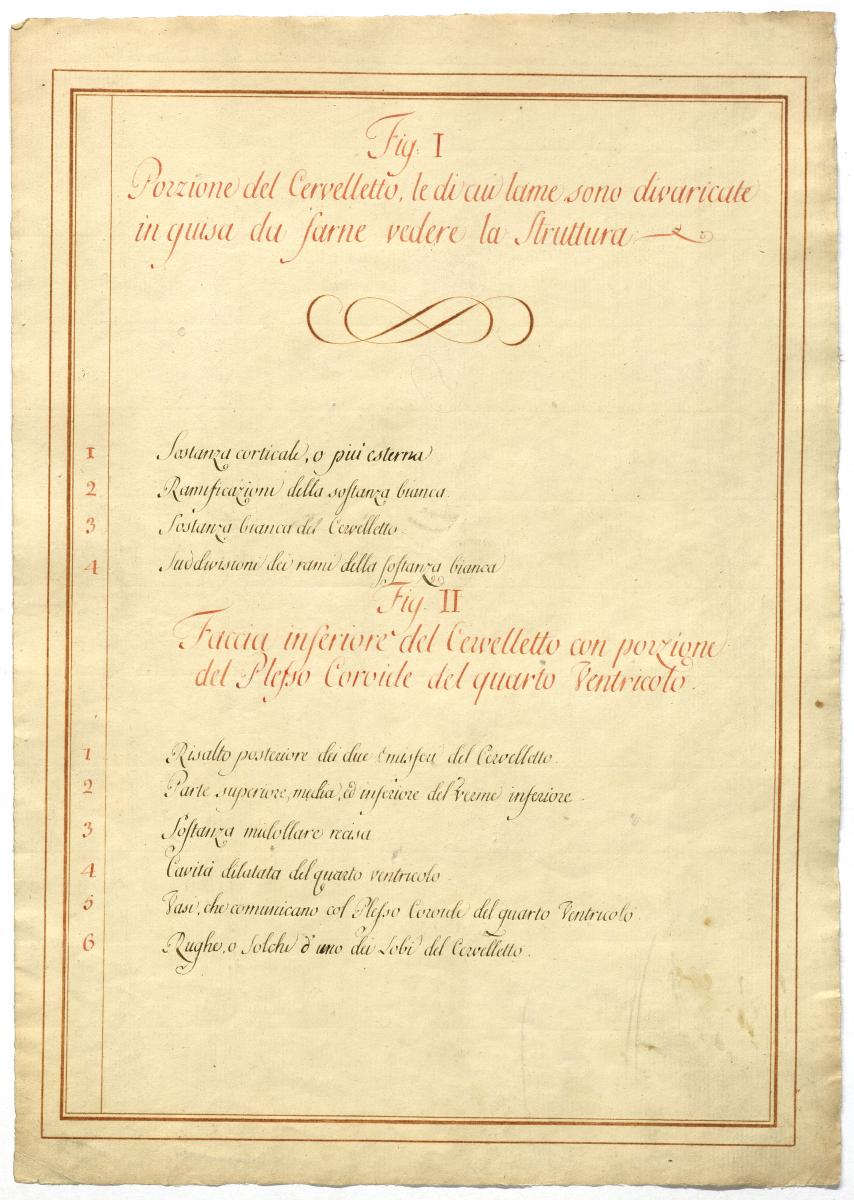 Fig. I
Porzione del Cervelletto, le di cui lame sono divaricate
in guisa da farne vedere la Struttura
1 Sostanza corticale, o più esterna
2 Ramificazioni della sostanza bianca.
3 Sostanza bianca del Cervelletto
4 Suddivisioni dei rami della sostanza bianca
Fig. II
Faccia inferiore del Cervelletto con porzione
del Plesso Coroide del quarto Ventricolo.
1 Risalto posteriore dei due Emisferi del Cervelletto.
2 Parte superiore, media, ed inferiore del Verme inferiore.
3 Sostanza midollare recisa
4 Cavità dilatata del quarto ventricolo.
5 Vasi, che comunicano col Plesso Coroide del quarto Ventricolo.
6 Rughe, o Solchi d'uno dei Lobi del Cervelletto.